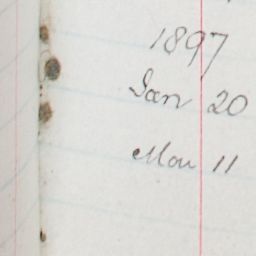 1897
Jan 20
Mar 11